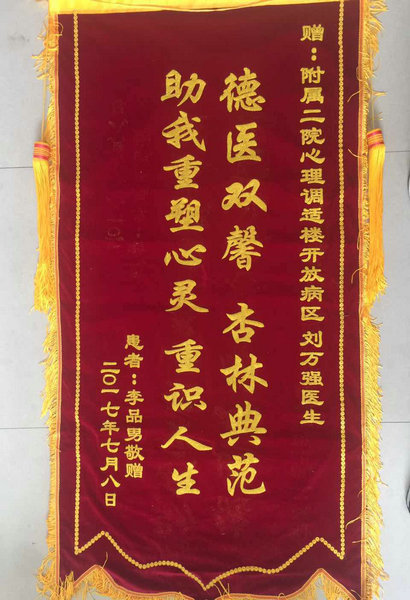 赠：附属二院心理调适楼开放病区 刘万强医生
德医双馨 杏林典范
助我重塑心灵 重识人生
患者：李品男敬赠
二〇一七年七月八日